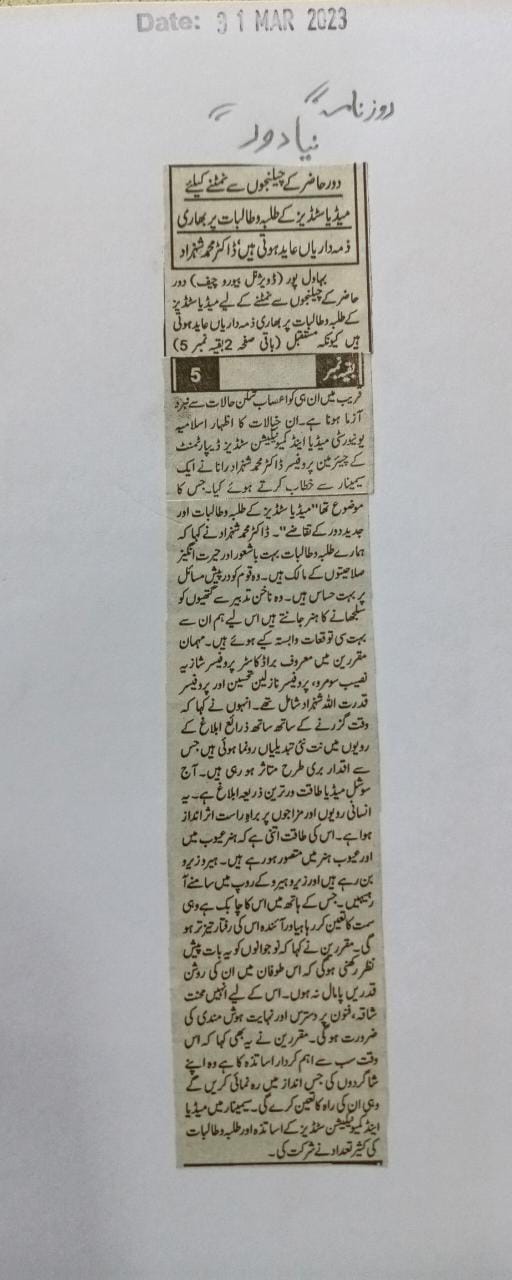 Date: 31 MAR 2023
روزنامہ
نیا دور
دور حاضر کے چیلنجوں سے نمٹنے کیلئے
میڈیا سٹڈیز کے طلبہ و طالبات پر بھاری
ذمہ داریاں عاید ہوتی ہیں' ڈاکٹر محمد شہزاد
بہاول پور (ڈویژنل بیورو چیف) دور
حاضر کے چیلنجوں سے نمٹنے کے لیے میڈیا سٹڈیز
کے طلبہ و طالبات پر بھاری ذمہ داریاں عاید ہوتی
ہیں کیونکہ مستقبل (باقی صفحہ 2 بقیہ نمبر 5)
بقیہ نمبر 5
قریب میں ان ہی کو اعصاب شکن حالات سے نبرد
آزما ہونا ہے۔ ان خیالات کا اظہار اسلامیہ
یونیورسٹی میڈیا اینڈ کمیونیکیشن سٹڈیز ڈیپارٹمنٹ
کے چیئرمین پروفیسر ڈاکٹر محمد شہزاد رانا نے ایک
سیمینار سے خطاب کرتے ہوئے کیا۔ جس کا
موضوع تھا "میڈیا سٹڈیز کے طلبہ و طالبات اور
جدید دور کے تقاضے"۔ ڈاکٹر محمد شہزاد نے کہا کہ
ہمارے طلبہ و طالبات بہت باشعور اور حیرت انگیز
صلاحیتوں کے مالک ہیں۔ وہ قوم کو درپیش مسائل
پر بہت حساس ہیں۔ وہ ناخن تدبیر سے گتھیوں کو
سلجھانے کا ہنر جانتے ہیں اس لیے ہم ان سے
بہت سی توقعات وابستہ کیے ہوئے ہیں۔ مہمان
مقررین میں معروف براڈ کاسٹر پروفیسر شازیہ
نصیب سومرو، پروفیسر نازلین تحسین اور پروفیسر
قدرت اللہ شہزاد شامل تھے۔ انہوں نے کہا کہ
وقت گزرنے کے ساتھ ساتھ ذرائع ابلاغ کے
رویوں میں نت نئی تبدیلیاں رونما ہوئی ہیں جس
سے اقدار بری طرح متاثر ہو رہی ہیں۔ آج
سوشل میڈیا طاقت ور ترین ذریعہ ابلاغ ہے۔ یہ
انسانی رویوں اور مزاجوں پر براہ راست اثر انداز
ہوا ہے۔ اس کی طاقت اتنی ہے کہ ہنر عیوب میں
اور عیوب ہنر میں متصور ہو رہے ہیں۔ ہیرو زیرو
بن رہے ہیں اور زیرو ہیرو کے روپ میں سامنے آ
رہیہیں۔ جس کے ہاتھ میں اس کا چابک ہے وہی
سمت کا تعین کر رہا ہیاور آئندہ اس کی رفتار تیز تر ہو
گی۔ مقررین نے کہا کہ نوجوانوں کو یہ بات پیش
نظر رکھنی ہوگی کہ اس طوفان میں ان کی روشن
قدریں پامال نہ ہوں۔ اس کے لیے انہیں محنت
شاقہ، فنون پر دسترس اور نہایت ہوش مندی کی
ضرورت ہوگی۔ مقررین نے یہ بھی کہا کہ اس
وقت سب سے اہم کردار اساتذہ کا ہے وہ اپنے
شاگردوں کی جس انداز میں رہ نمائی کریں گے
وہی ان کی راہ کا تعین کرے گی۔ سیمینار میں میڈیا
اینڈ کمیونیکیشن سٹڈیز کے اساتذہ اور طلبہ و طالبات
کی کثیر تعداد نے شرکت کی۔